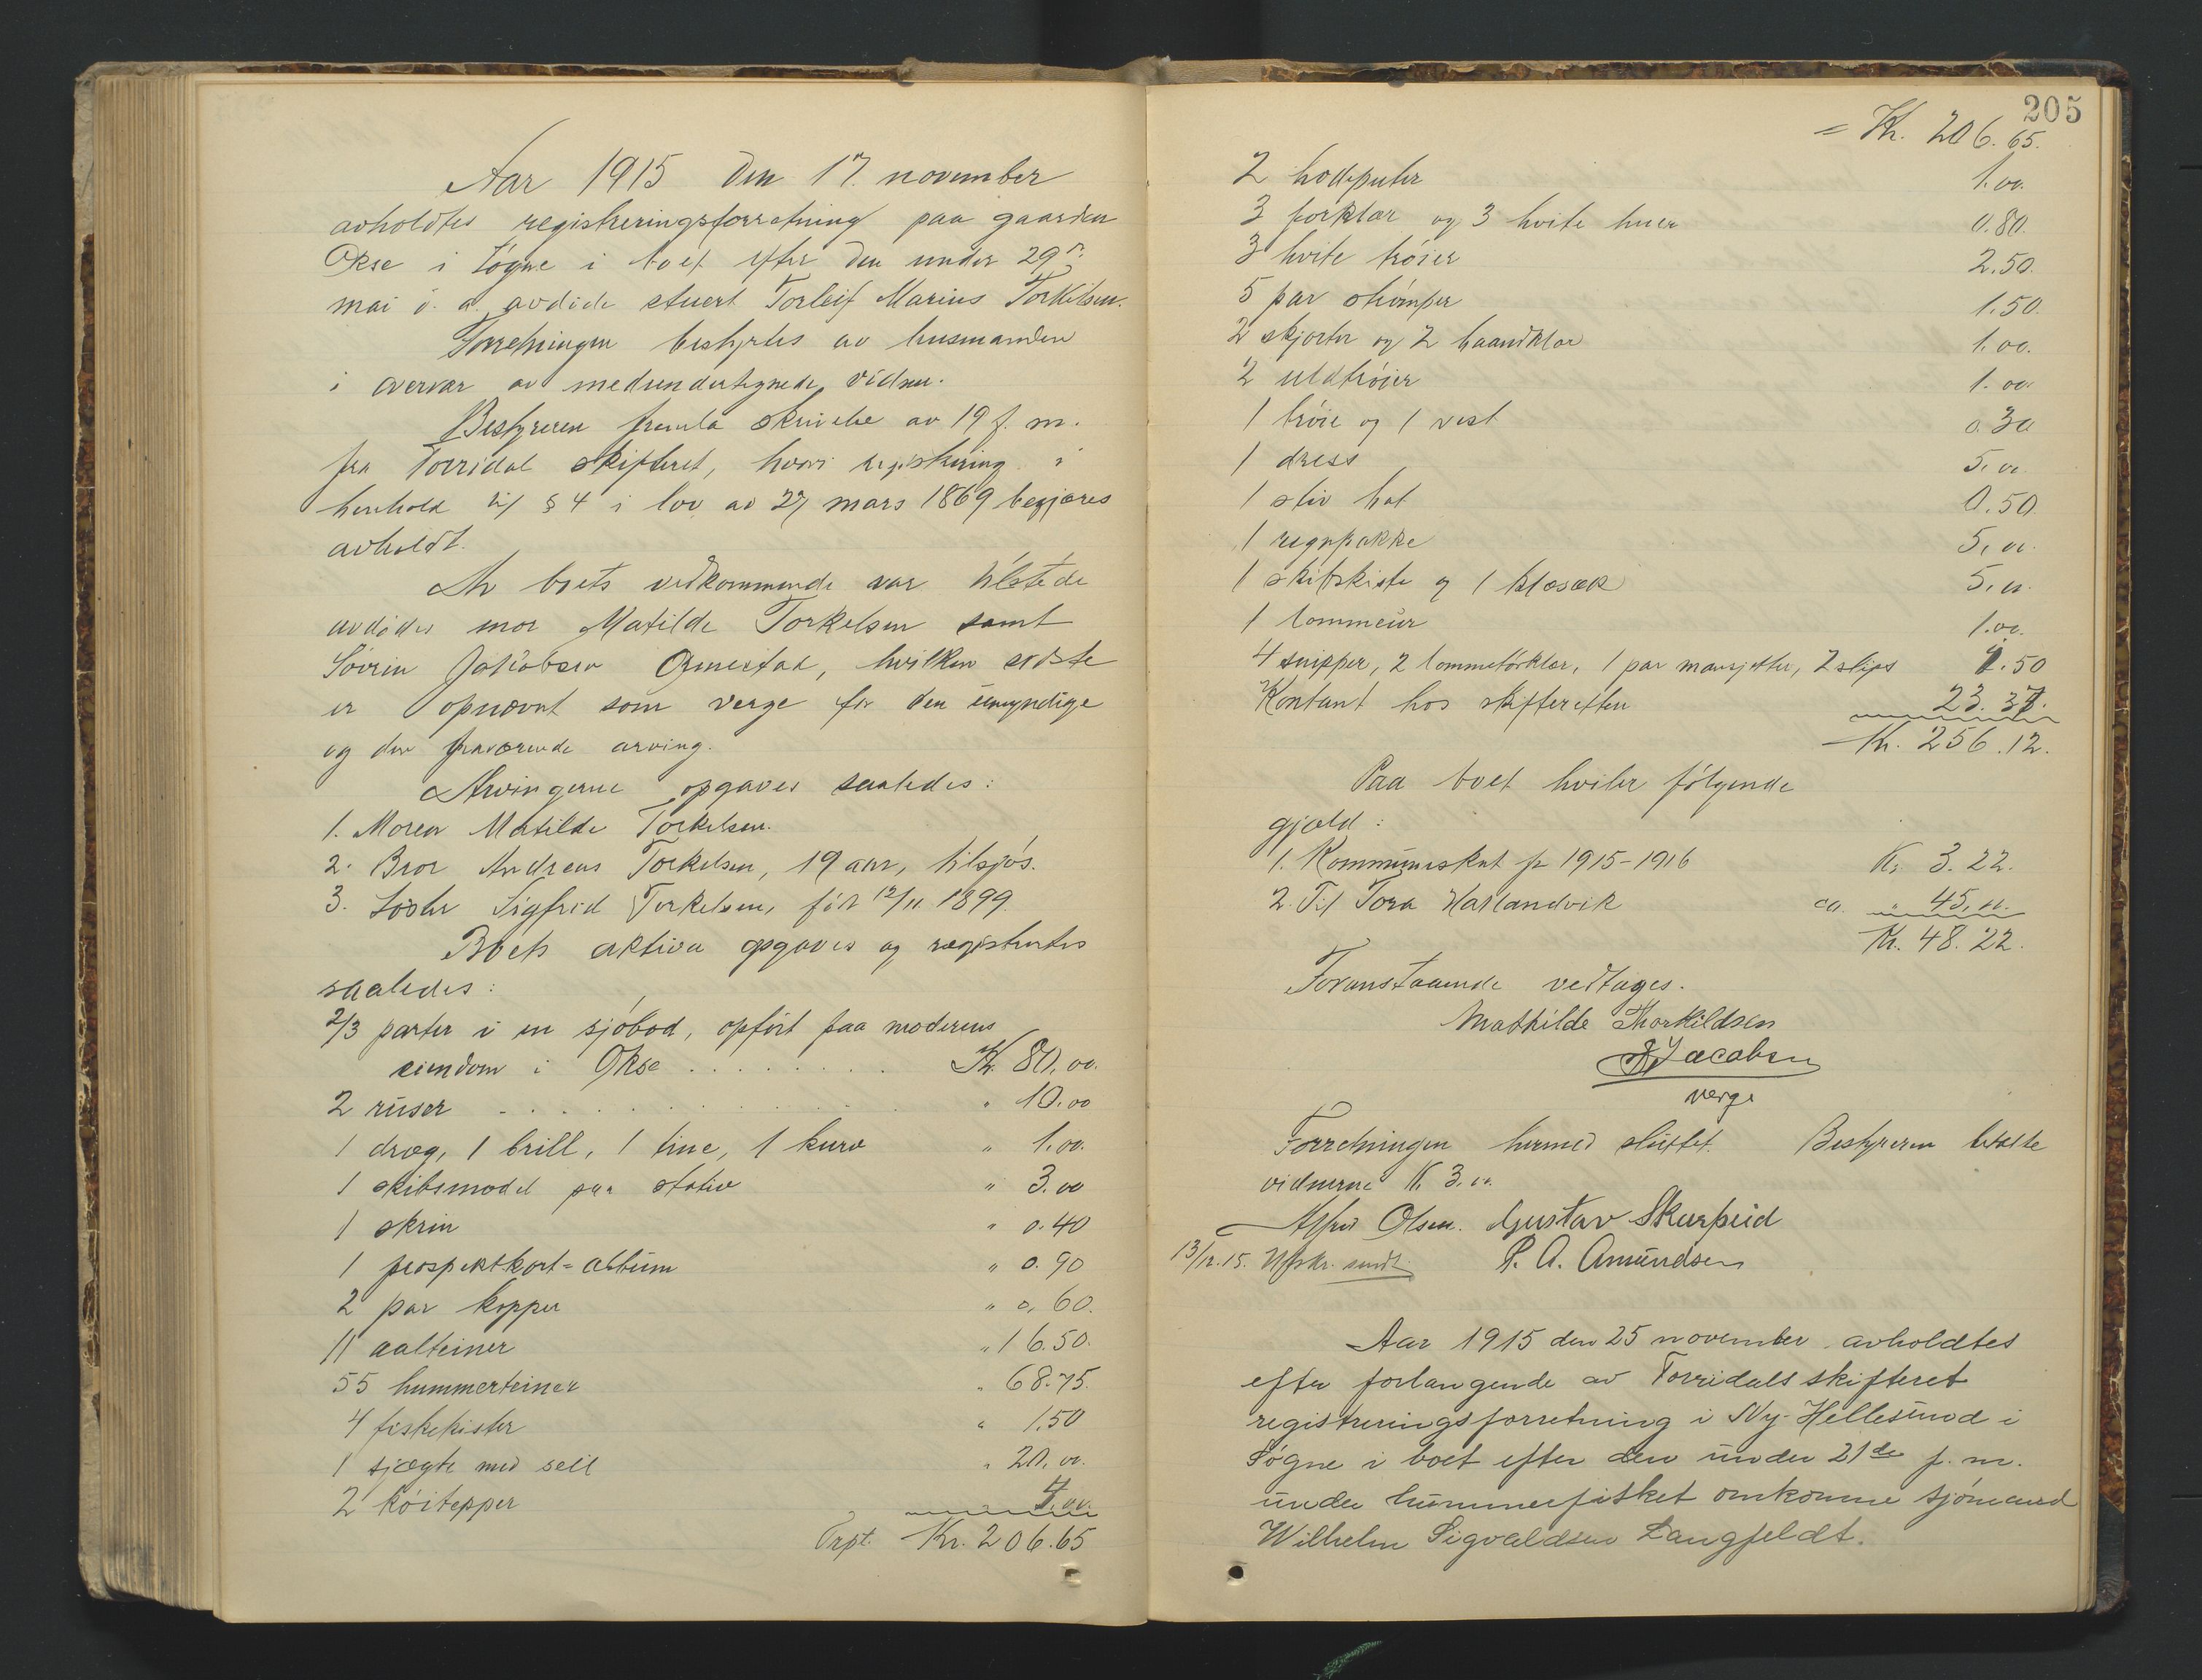 Aar 1915 den 17. november
avholdtes registreringsforretning paa gaarden
Okse i Søgne i boet efter den under 29de
mai d. a. avdøde stuert Torleif Marius Torkelsen.
Forretningen bestyrtes av lensmanden
i overvær av medundertegnede vidner.
Bestyreren fremla skrivelse av 19 f. m.
fra Torridal skifteret, hvori registrering i
henhold til § 4 i lov av 27 mars 1869 begjæres
avholdt.
Av boets vedkommende var tilstede
avdødes mor Matilde Torkelsen samt
Søvrin Jakobsen Ormestad, hvilken sidste
er opnævnt som verge for den umyndige
og den fraværende arving.
Arvingerne opgaves saaledes:
1. Moren Matilde Torkelsen.
2. Bror Andreas Torkelsen, 19 aar, tilsjøs.
3. Søster Sigfrid Torkelsen, født 12/11 1899.
Boets aktiva opgaves og registrertes
saaledes:
2/3 parter i en sjøbod, opført paa moderens
eiendom i Okse . . . . . . . . Kr. 80,00.
2 ruser . . . . . . . . " 10.00
1 dræg, 1 brill, 1 tine, 1 kurv " 1.00.
1 skibsmodel paa stativ " 3.00
1 skrin " 0.40
1 prospektkort-album " 0.90
2 par kopper " 0.60.
11 aalteiner " 16.50.
55 hummerteiner " 68.75.
4 fiskekister " 1,50
1 sjægte med seil " 20,00.
2 køitepper 4.00.
Trpt. Kr. 206.65
205
= Kr. 206.65.
2 hodeputer 1.00.
3 forklær og 3 hvite huer 0.80.
3 hvite trøier 2.50.
5 par strømper 1.50.
2 skjorter og 2 haandklær 1.00.
2 uldtrøier 1.00
1 trøie og 1 vest 0.30
1 dress 5.00.
1 stiv hat 0.50
1 regnfrakke 5,00.
1 skibskiste og 1 klæsæk 5,00.
1 lommeur 1.00.
4 snipper, 2 lommetørklær, 1 par mansjetter, 2 slips 1.50
Kontant hos skifteretten 23.37.
Kr. 256.12.
Paa boet hviler følgende
gjæld:
1. Kommuneskat for 1915-1916 Kr. 3.22.
2. Til Tora Haslandvik ca. " 45,00.
Kr. 48.22.
Foranstaaende vedtages.
Mathilde Thorkildsen
S Jacobsen
verge
Forretningen hermed sluttet. Bestyreren betalte
vidnerne Kr. 3.00.
Alfred Olsen. Gustav Skarpeid
13/12.15. Utskr. sendt. P. A. Amundsen
Aar 1915 den 25 november avholdtes
efter forlangende av Torridals skifteret
registreringsforretning i Ny-Hellesund i
Søgne i boet efter den under 21de f. m.
under hummerfisket omkomne sjømand
Wilhelm Sigvaldsen Langfeldt.